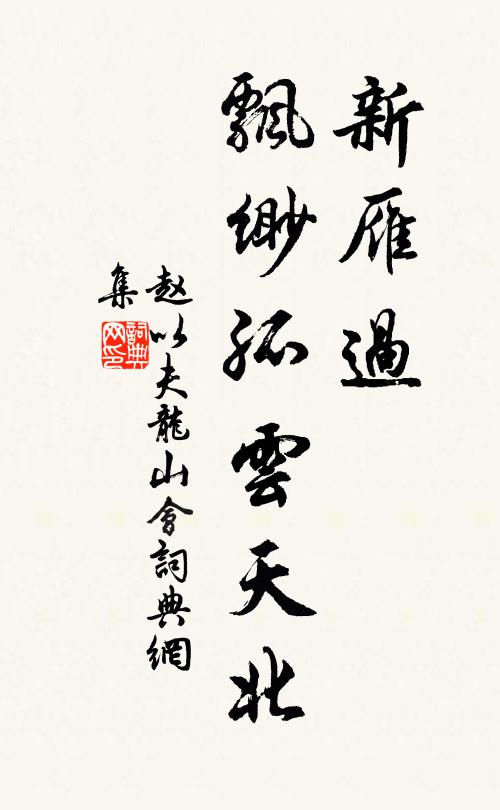 新雁過
飄緲孤雲天北
赵以夫龍山會詞典網
集
詞典
网印